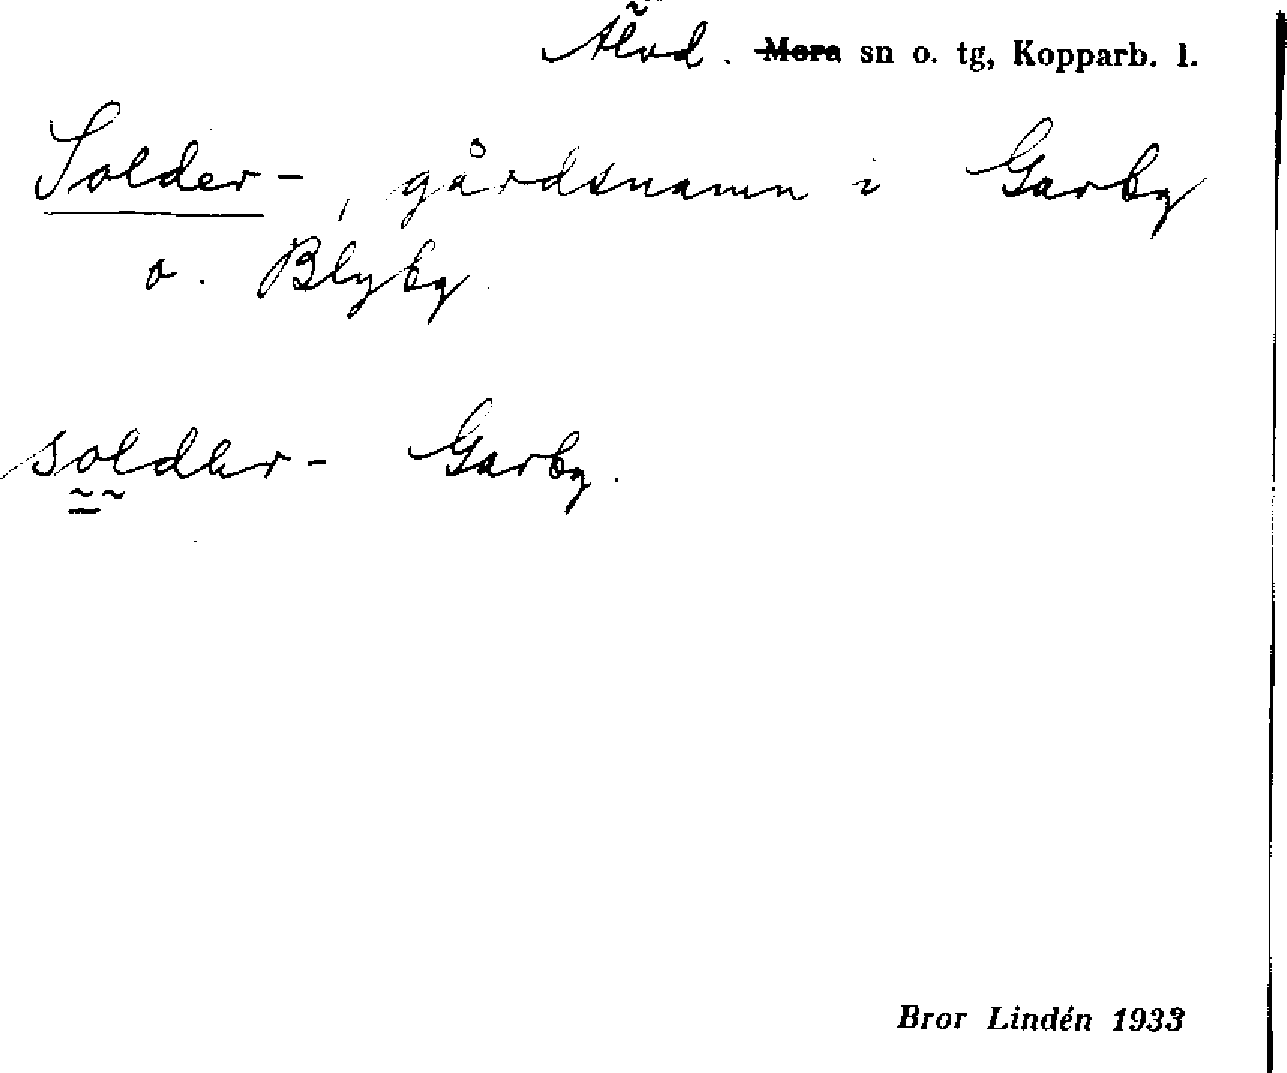 Älvd. Mora sn o. tg, Kopparb. l.
Solder-, gårdsnamn i Garby
o. Blyby.
soldər- Garby.
Bror Lindén 1933